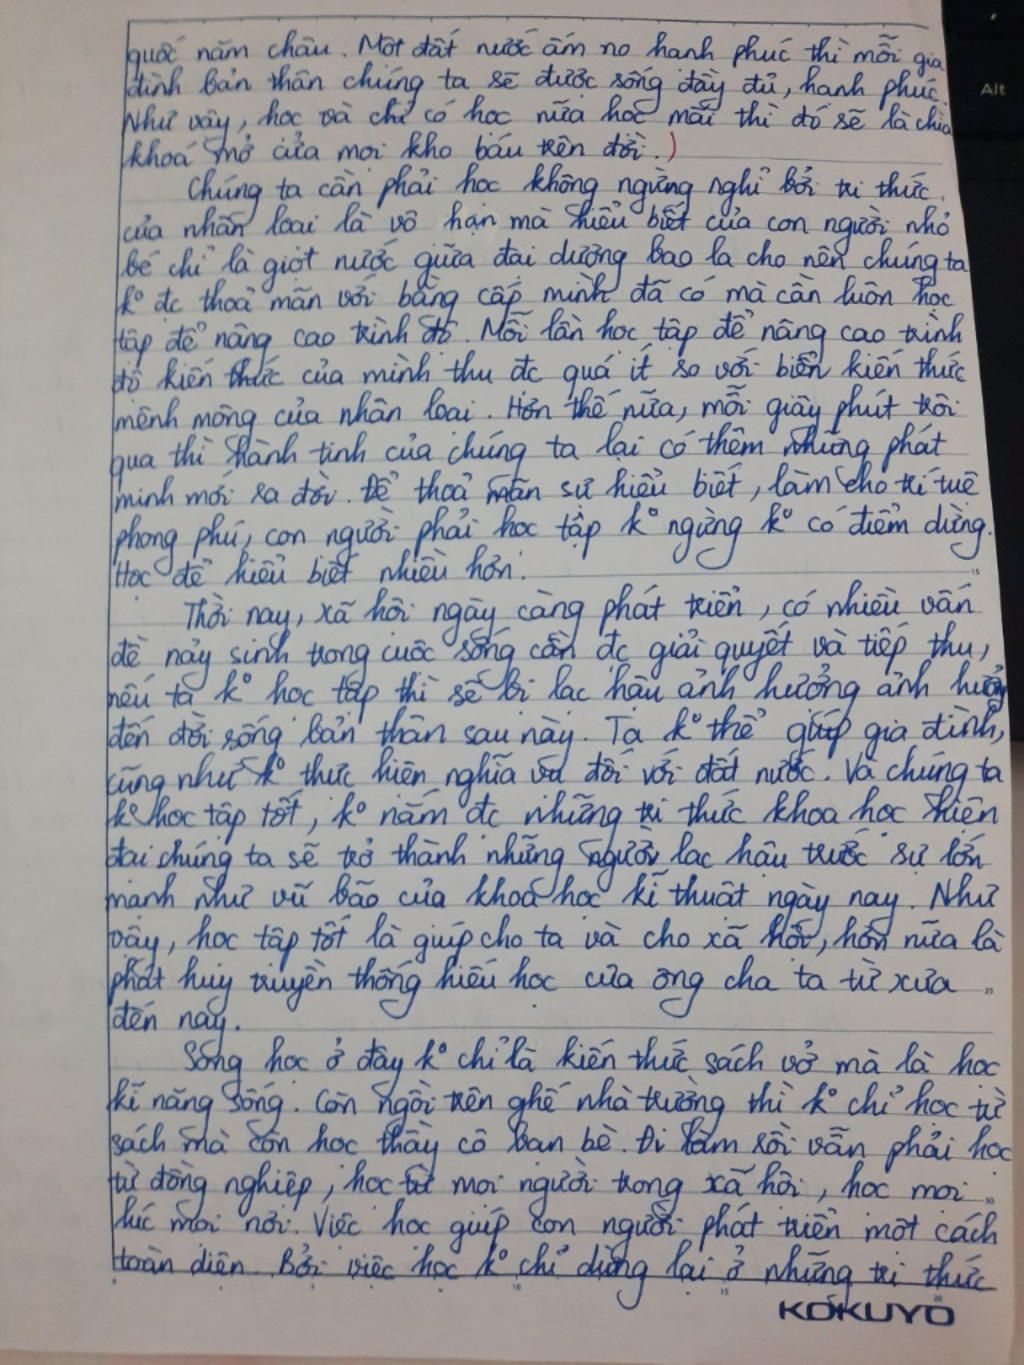 quốc năm châu. Một đất nước ấm no hạnh phúc thì mỗi gia
đình bản thân chúng ta sẽ được sống đầy đủ, hạnh phúc.
Như vậy, học và chỉ có học nữa học mãi thì đó sẽ là chìa
khoá mở cửa mọi kho báu trên đời.)
Chúng ta cần phải học không ngừng nghỉ bởi tri thức
của nhân loại là vô hạn mà hiểu biết của con người nhỏ
bé chỉ là giọt nước giữa đại dương bao la cho nên chúng ta
k° đc thoả mãn với bằng cấp mình đã có mà cần luôn học
tập để nâng cao trình độ. Mỗi lần học tập để nâng cao trình
độ kiến thức của mình thu đc quá ít so với biển kiến thức
mênh mông của nhân loại. Hơn thế nữa, mỗi giây phút trôi
qua thì hành tinh của chúng ta lại có thêm những phát
minh mới ra đời. Để thoả mãn sự hiểu biết, làm cho trí tuệ
phong phú, con người phải học tập k° ngừng k° có điểm dừng.
Học để hiểu biết nhiều hơn.
Thời nay, xã hội ngày càng phát triển, có nhiều vấn
đề nảy sinh trong cuộc sống cần đc giải quyết và tiếp thu,
nếu ta k° học tập thì sẽ bị lạc hậu ảnh hưởng ảnh hưởng
đến đời sống bản thân sau này. Ta k° thể giúp gia đình,
cũng như k° thực hiện nghĩa vụ đối với đất nước. Và chúng ta
k° học tập tốt, k° nắm đc những tri thức khoa học hiện
đại chúng ta sẽ trở thành những người lạc hậu trước sự lớn
mạnh như vũ bão của khoa học kĩ thuật ngày nay. Như
vậy, học tập tốt là giúp cho ta và cho xã hội, hơn nữa là
phát huy truyền thống hiếu học của ông cha ta từ xưa
đến nay.
Sống học ở đây k° chỉ là kiến thức sách vở mà là học
kĩ năng sống. Còn ngồi trên ghế nhà trường thì k° chỉ học từ
sách mà còn học thầy cô bạn bè. Đi làm rồi vẫn phải học
từ đồng nghiệp, học từ mọi người trong xã hội, học mọi
lúc mọi nơi. Việc học giúp con người phát triển một cách
toàn diện. Bởi việc học k° chỉ dừng lại ở những tri thức
KOKUYO
Alt